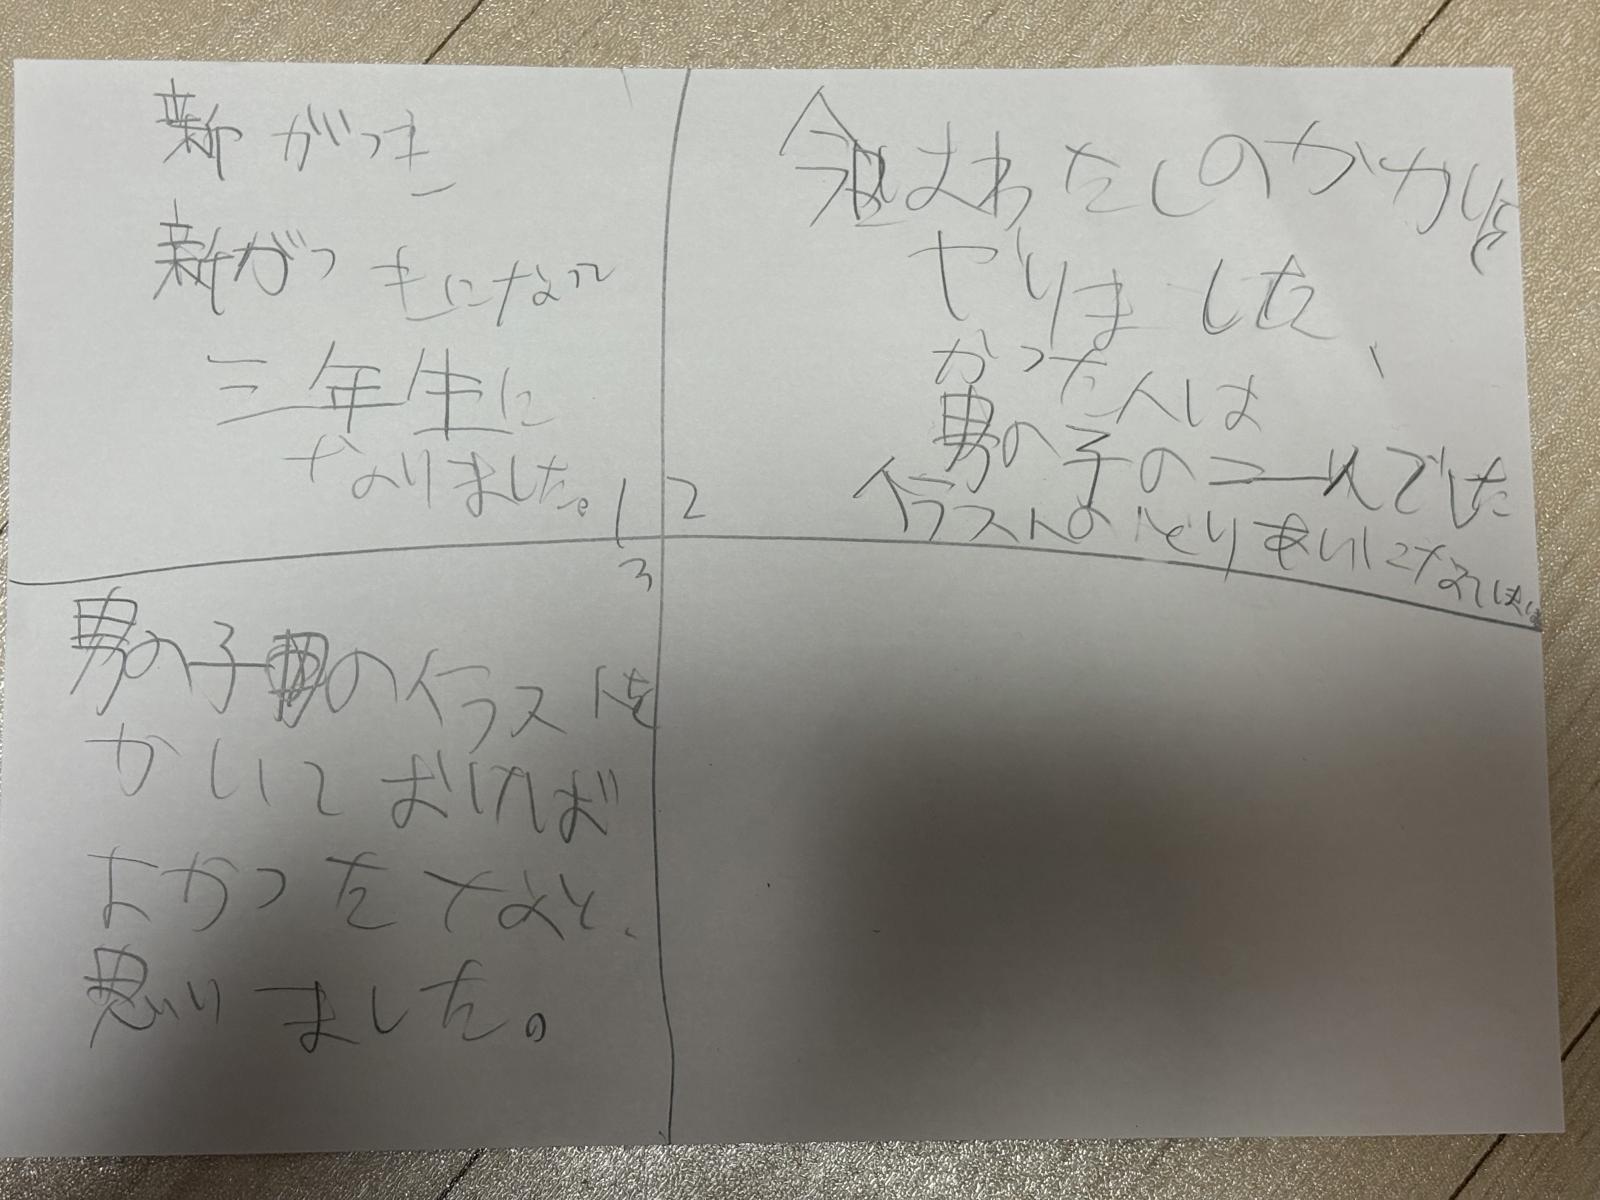 新がっき
新がっきになって
三年生に
なりました。
1
2
今はわたしのかかりを
やりました、
かった人は
男の子の
でした
イラストのとりあいになって
3
男の子のイラストを
かいておけば
よかったなと、
思いました。